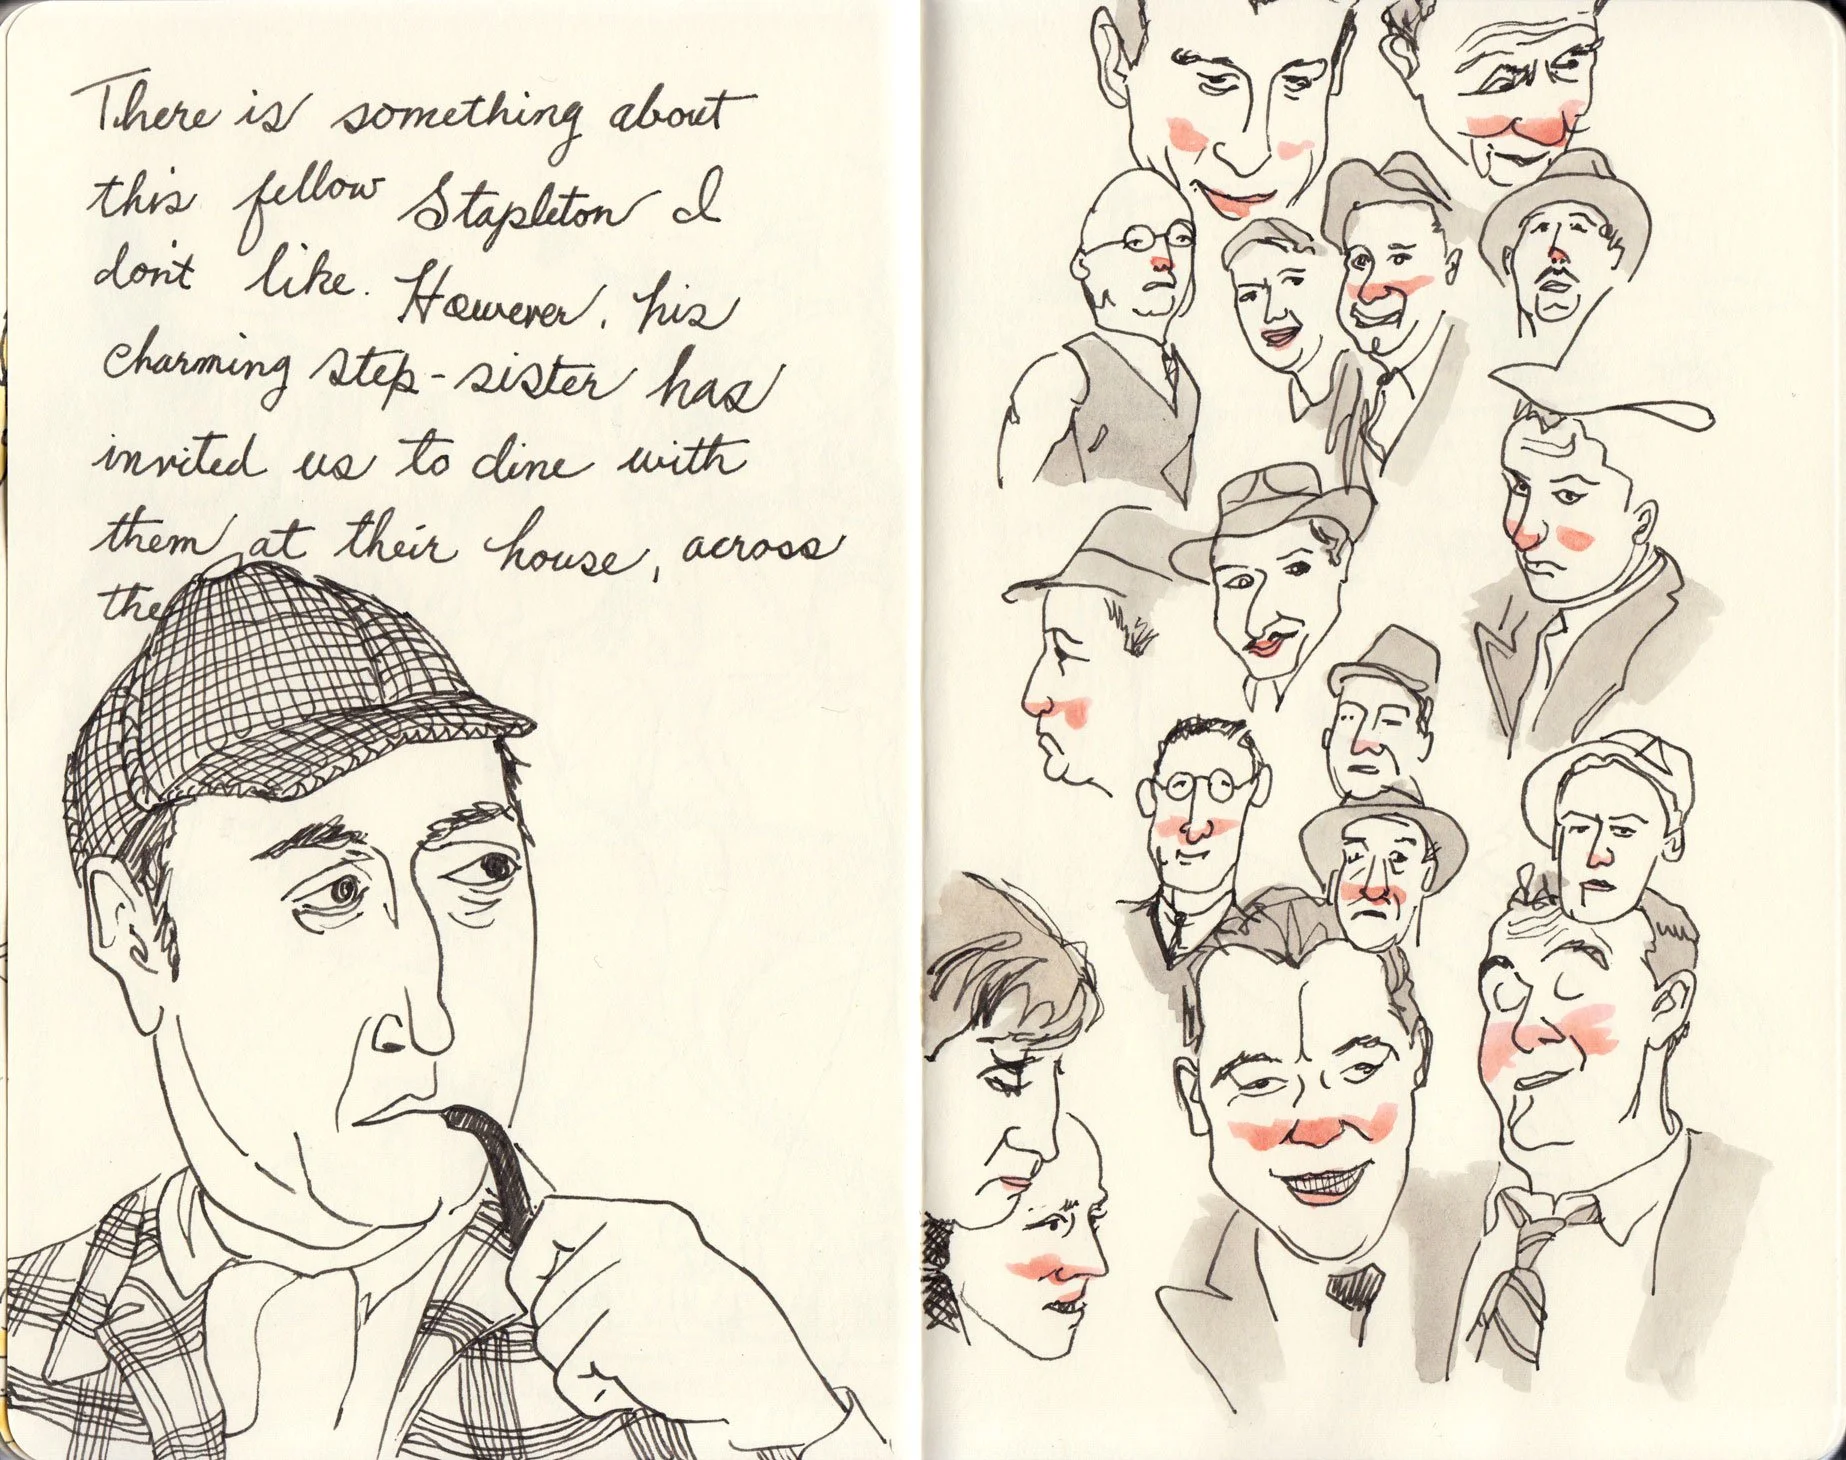 There is something about
this fellow Stapleton I
don't like. However, his
charming step-sister has
invited us to dine with
them at their house, across
the